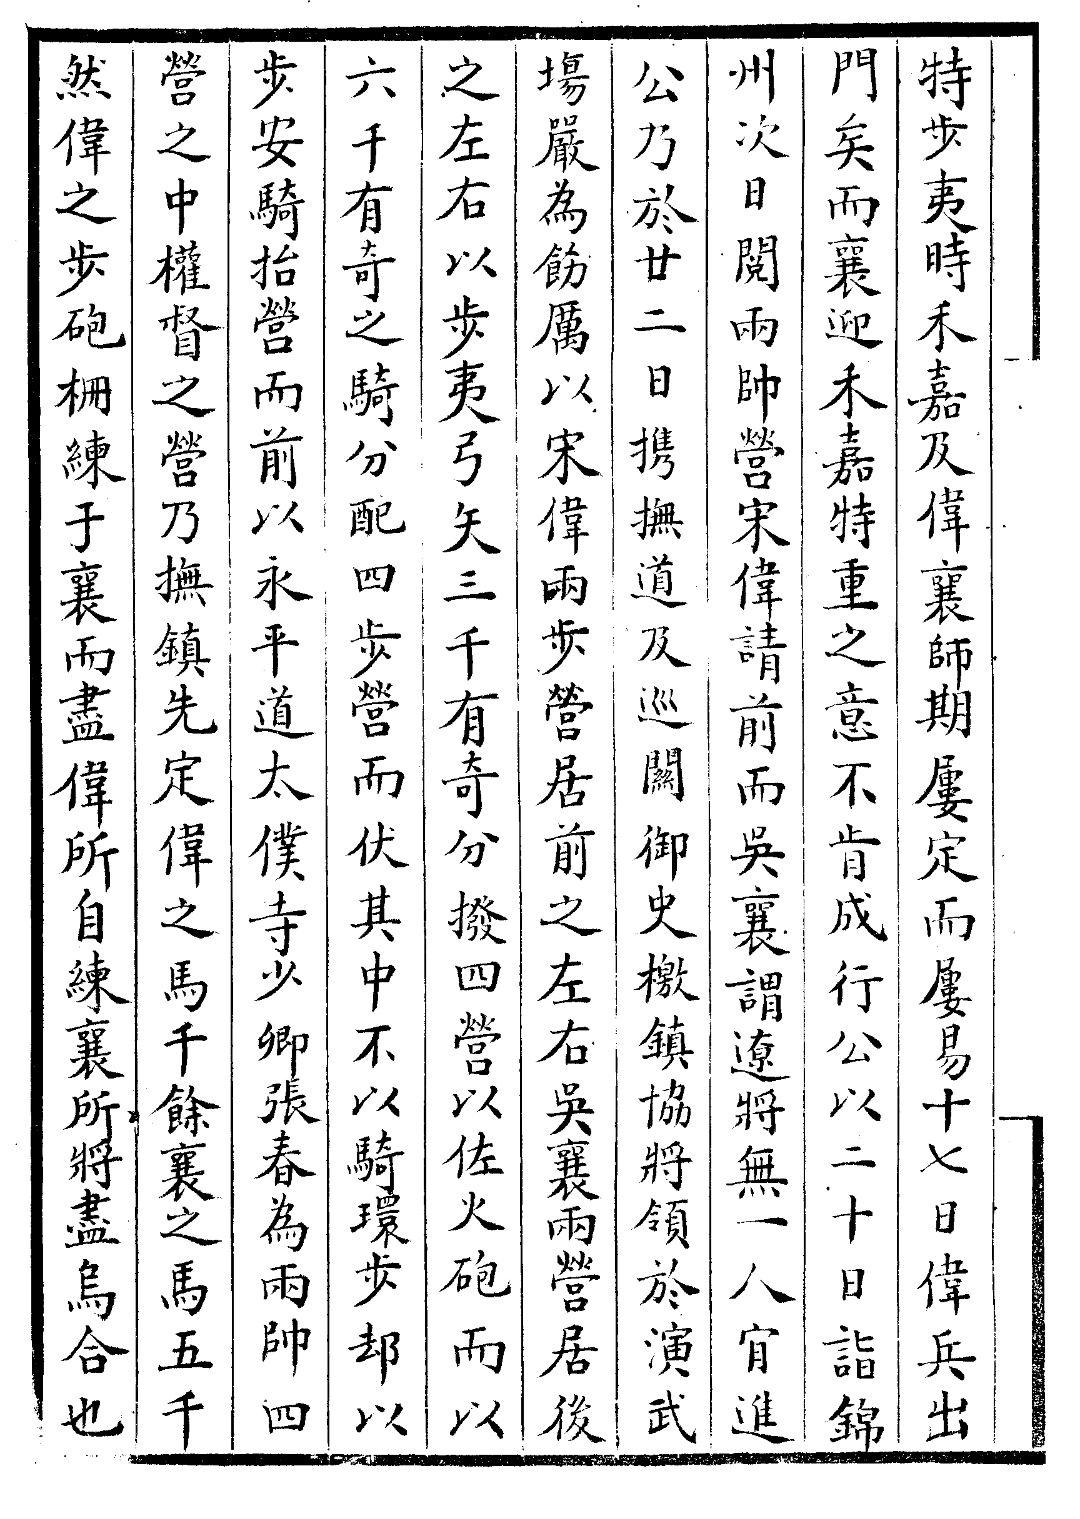 特步夷時禾嘉及偉襄師期屢定而屢易十七日偉兵出
門矣而襄迎禾嘉特重之意不肯成行公以二十日詣錦
州次日閱兩帥營宋偉請前而吳襄謂遼將無一人肯進
公乃於廿二日携撫道及巡關御史檄鎮協將領於演武
塲嚴為飭厲以宋偉兩步營居前之左右吳襄兩營居後
之左右以步夷弓矢三千有奇分撥四營以佐火砲而以
六千有奇之騎分配四步營而伏其中不以騎環步却以
步安騎抬營而前以永平道太僕寺少卿張春為兩帥四
營之中權督之營乃撫鎮先定偉之馬千餘襄之馬五千
然偉之步砲柵練于襄而盡偉所自練襄所將盡烏合也